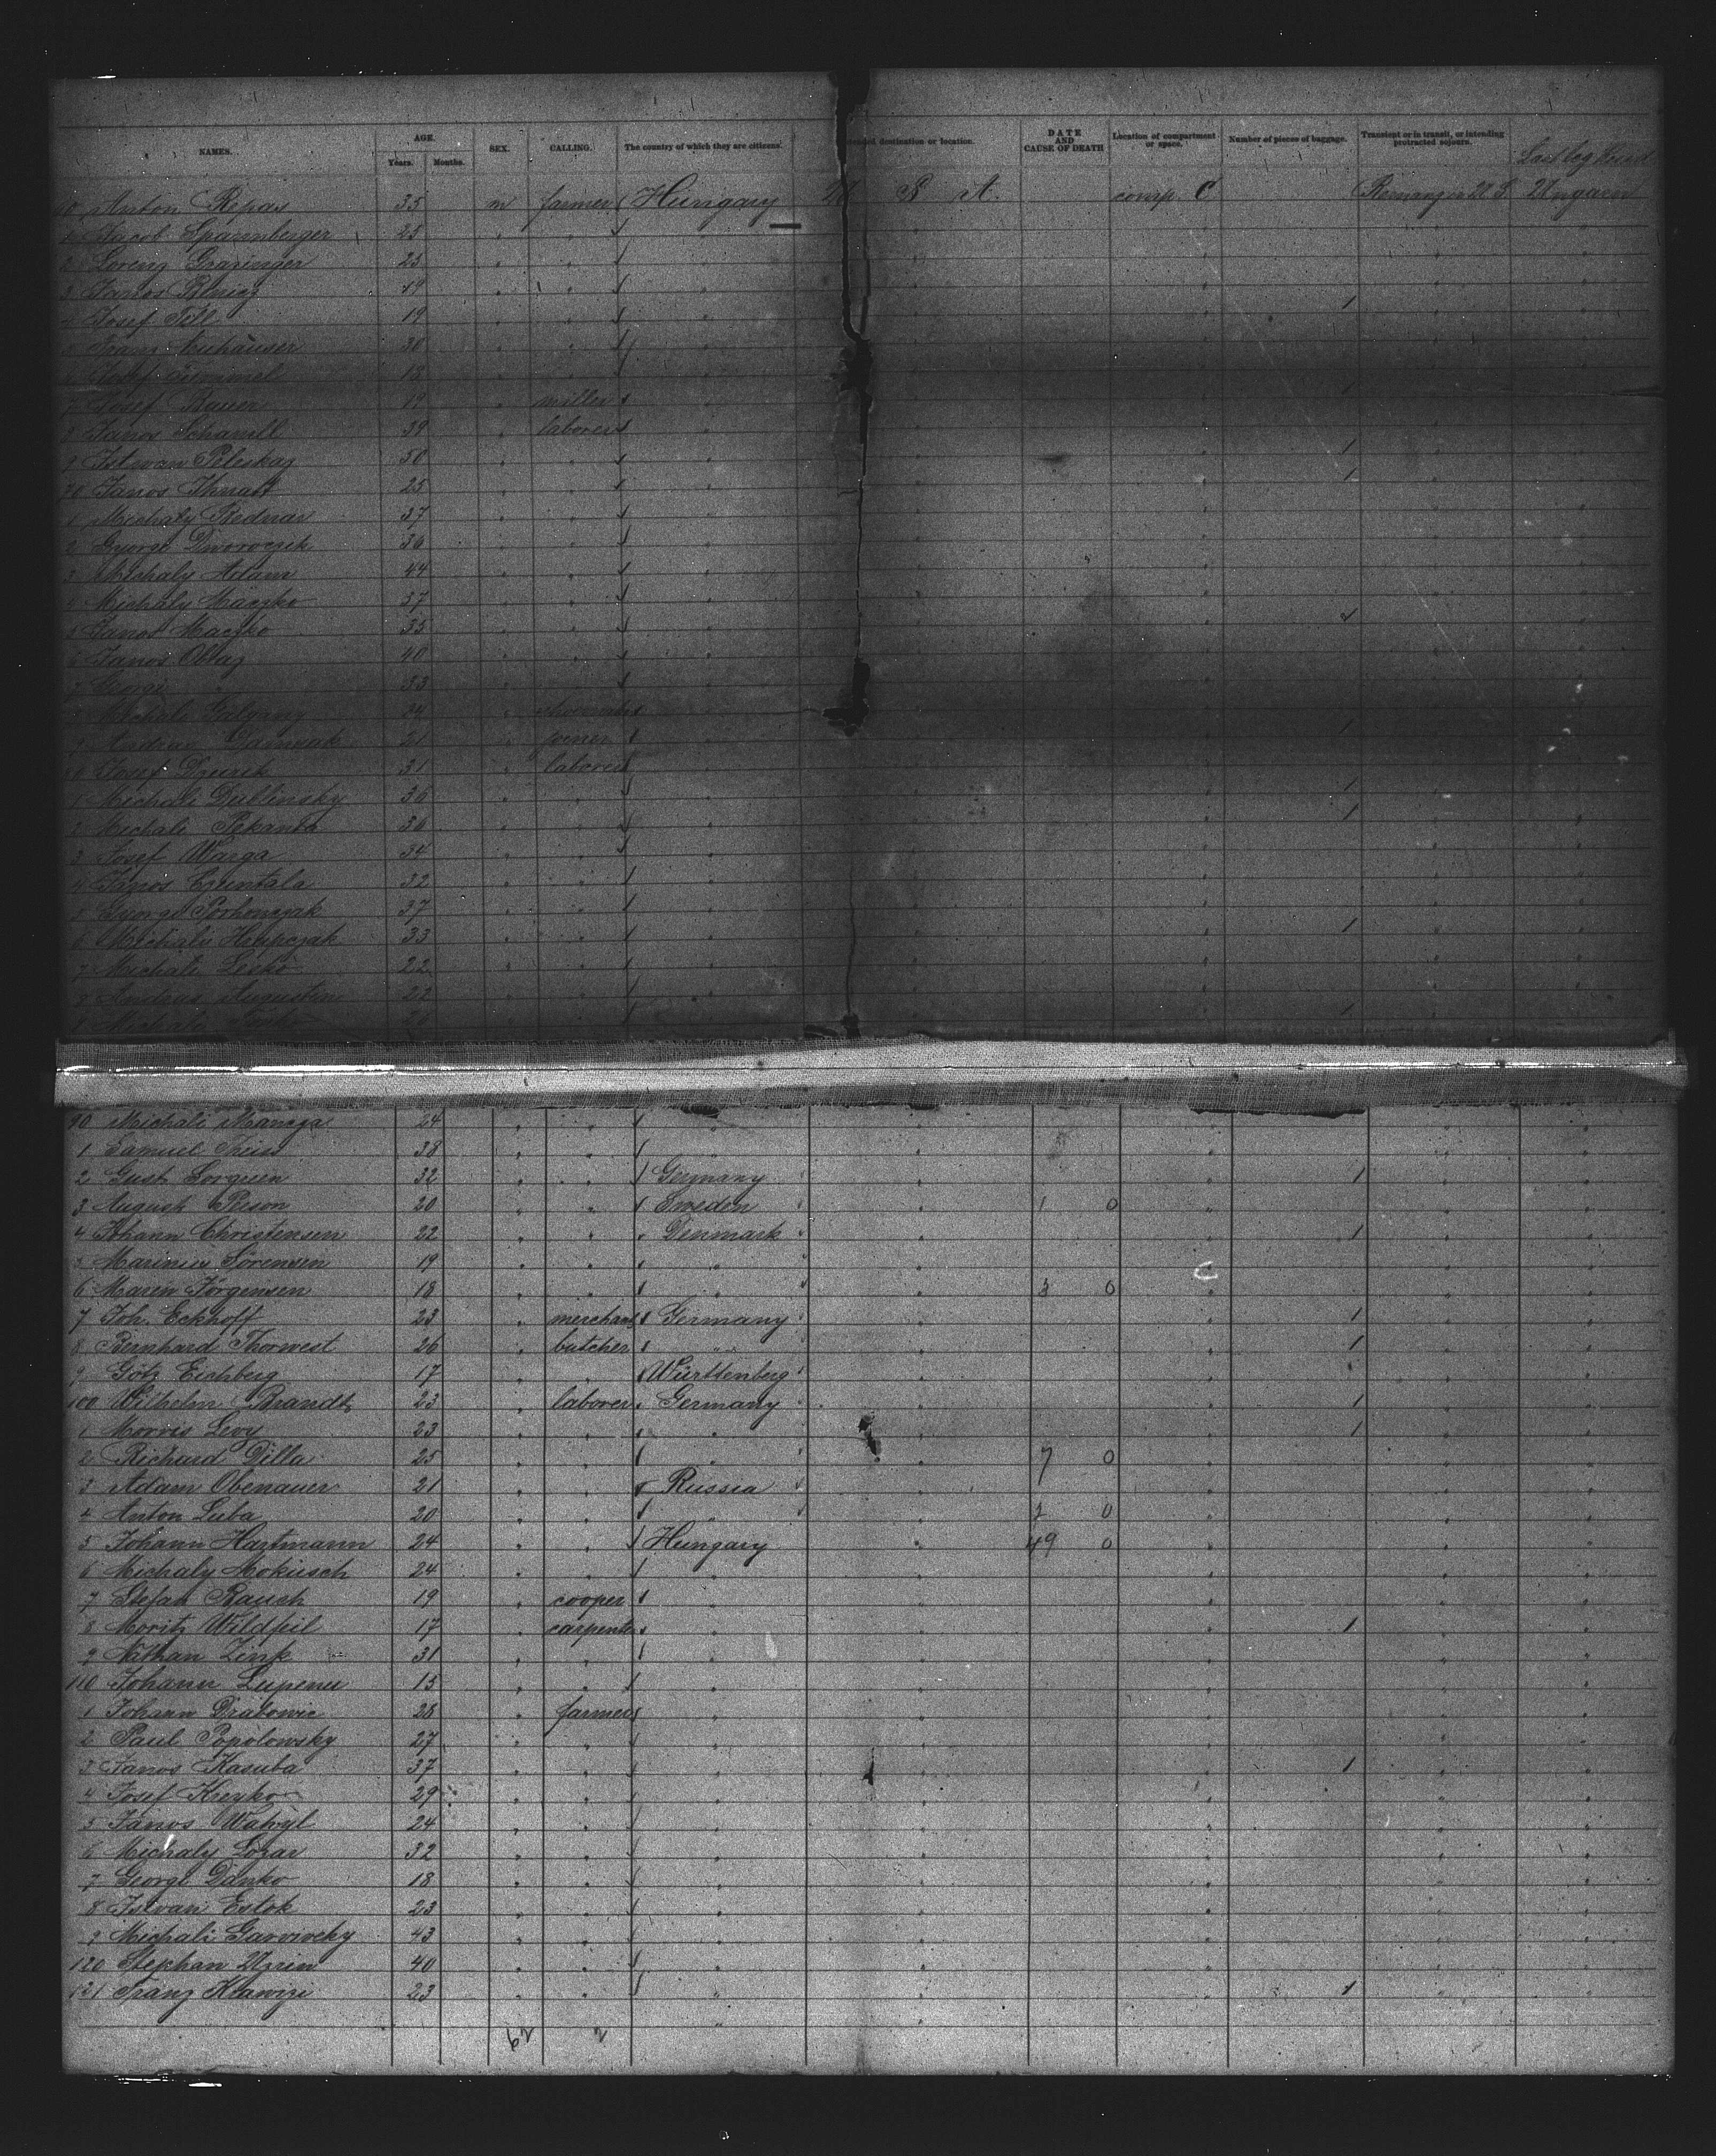 NAMES. AGE. Years. Months. SEX. CALLING. The country of which they are citizens. destination or location. DATE AND CAUSE OF DEATH Location of compartment or space. Number of pieces of baggage. Transient or in transit, or intending protracted sojourn.
Anton Repas 35 m farmer Hungary U S A. comp. C Ungarn
1 Jacob Spannberger 25
2 Lorenz Grazinger 25
3 Janos 19 1
4 Josef Till 19
5 Franz Neuhauser 30
6 Josef 18
7 Josef Bauer 19 miller
8 Janos Schandl 39 laborer
9 Istvan Peleskag 50 1
70 Janos Ihnatt 25 1
1 Michaly Bednar 37
2 Györgi Dworoczik 36
3 Michaly Adam 44
4 Michaly Maczko 37
5 Janos Maczko 35
6 Janos Oblag 40
7 Georgi " 33
8 Michali 24
9 Andras 21 joiner 1
80 Josef 31 laborer
1 Michali Dullinsky 36 1
2 Michali Pekanda 36 1
3 Josef Warga 34
4 Janos Czuntala 32
5 György Porhonzak 37
6 Michali Hrupczak 33 1
7 Michali Lesko 22
8 Andras Augustin 22
9 Michaly 26 1
90 Michali Mancza 24
1 Samuel Theiss 38
2 Gust. Lorgeen 32 Germany 1
3 August Person 20 Sweden 1 0
4 Johann Christensen 22 Denmark 1
5 Marinus Sörensen 19 "
6 Maren Jörgensen 18 " 3 0
7 Joh. Eckhoff 23 merchant Germany 1
8 Bernhard Thorwest 26 butcher " 1
9 Götz Eichberg 17 Württenberg
100 Wilhelm Brandt 23 laborer Germany 1
1 Morris Levy 23 " 1
2 Richard Dilla 25 " 7 0
3 Adam Obenauer 21 Russia
4 Anton Luba 20 " 2 0
5 Johann Hartmann 24 Hungary 49 0
6 Michaly Mokusch 24
7 Stefan Rauch 19 cooper
8 Moritz Wildfeil 17 carpenter 1
9 Nathan Zink 31
110 Johann Lupenu 15
1 Johann Drabowic 28 farmer
2 Paul Popolowsky 27
3 Janos Kasuba 37 1
4 Josef Kreyko 29
5 Janos Watvyl 24
6 Michaly Lozar 32
7 Georgi Danko 18
8 Istvan Estok 23
9 Michali Garvirsky 43
120 Stephan Uzrin 40
121 Franz Krawizi 23 1
62 2